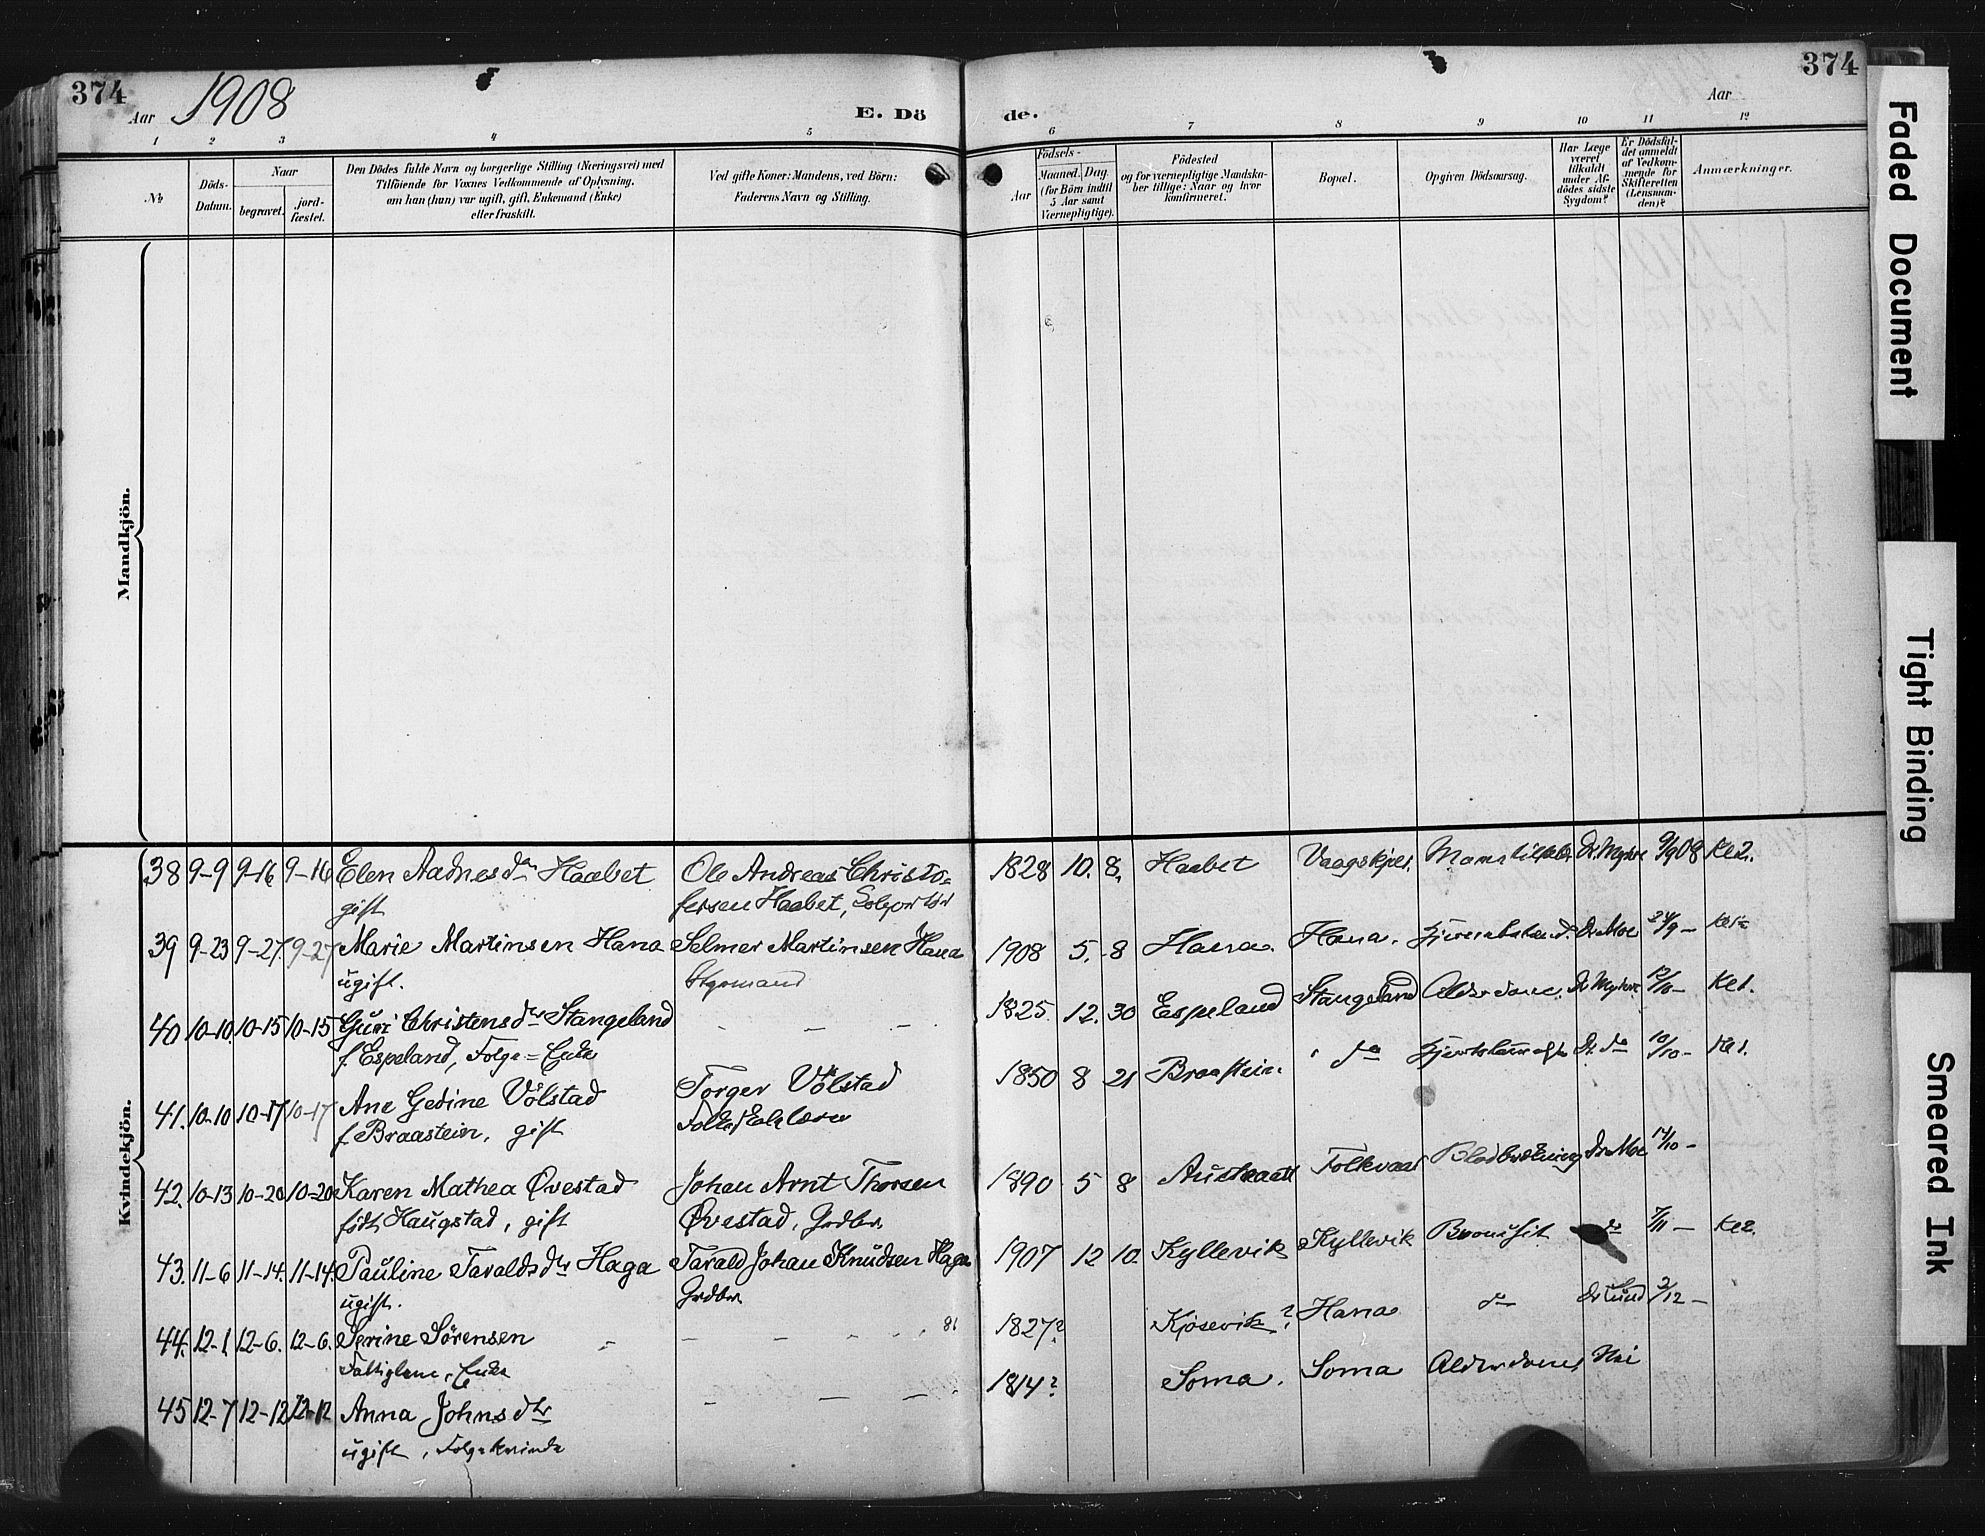 374
Aar 1908
E. Döde.
Aar
374
1 2 3 4 5 6 7 8 9 10 11 12
No
Döds-Datum.
Naar
begravet.
jord-fæstet.
Den Dödes fulde Navn og borgerlige Stilling (Næringsvei) med
Tilföiende for Voxnes Vedkommende af Oplysning,
om han (hun) var ugift, gift, Enkemand (Enke)
eller fraskilt.
Ved gifte Koner: Mandens, ved Börn:
Faderens Navn og Stilling.
Födsels-
Aar
Maaned. Dag.
(for Börn indtil
5 Aar samt
Værnepligtige).
Födested
og for værnepligtige Mandska-
ber tillige: Naar og hvor
konfirmeret.
Bopæl.
Opgiven Dödsaarsag.
Har Læge
været
tilkaldt
under Af-
dödes sidste
Sygdom?
Er Dödsfal-
det anmeldt
af Vedkom-
mende for
Skifteretten
(Lensman-
den)?
Anmærkninger.
Mandkjön.
Kvindekjön.
38 9-9 9-16 9-16 Elen Aadnesdr Haabet Ole Andreas Christo= 1828 10. 8. Haabet Vaagskjær. Dr. Myhre 9/9 08 Kl 2.
gift fersen Haabet,
39 9-23 9-27. 9-27 Marie Martinsen Hana Selmer Martinsen Hana 1908 5. 8 Hana. Hana. Dr Moe 24/9 -
ugift. Styrmand
40 10-10. 10-15 10-15 Guri Christensdtr Stangeland - - - 1825. 12. 30 Espeland Stangeland Alderdom. Dr Myhre 12/10 - Kl 1.
f. Espeland, Folge= Enke
41. 10-10 10-17 10-17 Ane Gedine Völstad Torger Völstad 1850 8 21 Braastein. do Dr. do 10/10 - Kl 1.
f Braastein, gift
42. 10-13 10-20 10-20 Karen Mathea Øvestad Johan Arnt Thorsen 1890 5 8 Austraatt Folkvaar Dr Moe 14/10 -
födt Haugstad, gift Øvestad, Grdbr.
43. 11-6 11-14. 11-14. Pauline Taraldsdtr Haga Tarald Johan Knudsen Haga 1907 12 10. Kyllevik Kyllevik do 7/11 - Kl 2.
ugift. Grdbr
44. 12-1 12-6. 12-6. Serine Sörensen - - - - 81 1827? Kjosevik? Hana do Dr Lund 2/12 -
Fattiglem, Enke
45 12-7 12-12 12-12 Anna Johnsdtr - - - 1814? Soma. Soma Alderdom Nei
ugift, Folgekvinde
Faded Document
Tight Binding
Smeared Ink